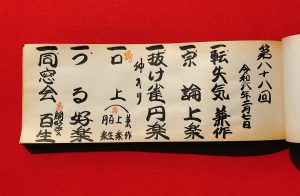 第八十八回
令和八年二月七日
一転失気 兼作
一宗論 上楽
一抜け雀 円楽
仲入り
一口上 兼作 上楽 朋生
一づる 好楽
一同窓会 百生